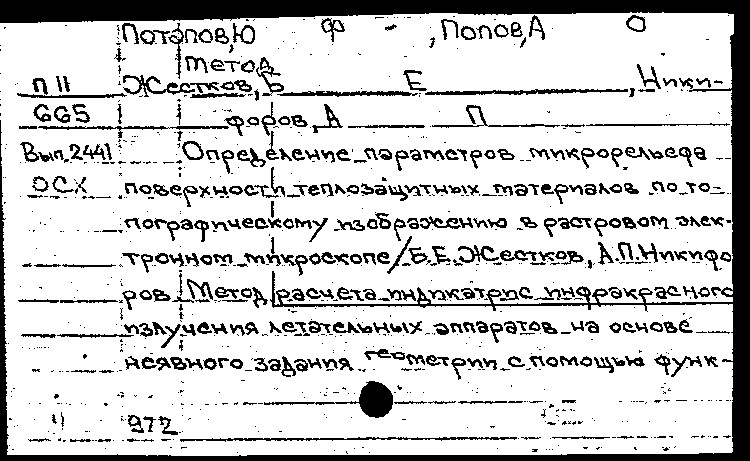 Потапов,Ю Ф - , Попов,А О
Метод
П 11 Жестков, Б Е , Ники-
665 форов, А П
Вып.2441 Определение параметров микрорельефа
ОСХ поверхности теплозащитных материалов по то-
пографическому изображению в растровом элек-
тронном микроскопе/Б.Е.Жестков, А.П.Никифо
ров. Метод расчета индикатрис инфракрасного
излучения летательных аппаратов на основе
неявного задания геометрии с помощью функ-
972